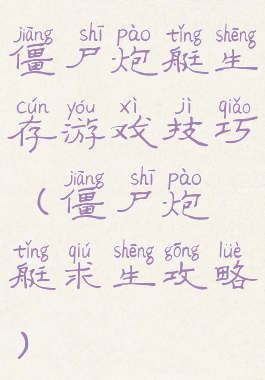 jiāng shī pào tǐng shēng
僵尸炮艇生
cún yóu xì jì qiǎo
存游戏技巧
jiāng shī pào
(僵尸炮
tǐng qiú shēng gōng lüè
艇求生攻略
)